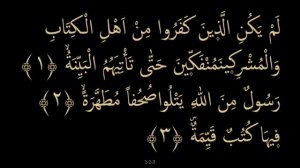 لَمْ يَكُنِ الَّذِينَ كَفَرُوا مِنْ أَهْلِ الْكِتَابِ
وَالْمُشْرِكِينَ مُنْفَكِّينَ حَتَّى تَأْتِيَهُمُ الْبَيِّنَةُ ﴿١﴾
رَسُولٌ مِنَ اللَّهِ يَتْلُوا صُحُفاً مُطَهَّرَةً ﴿٢﴾
فِيهَا كُتُبٌ قَيِّمَةٌ ﴿٣﴾
1-2-3